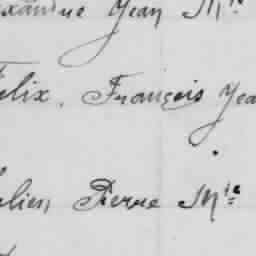 xandre Jean Mie
Felix, François Jea
elien Pierre Mie